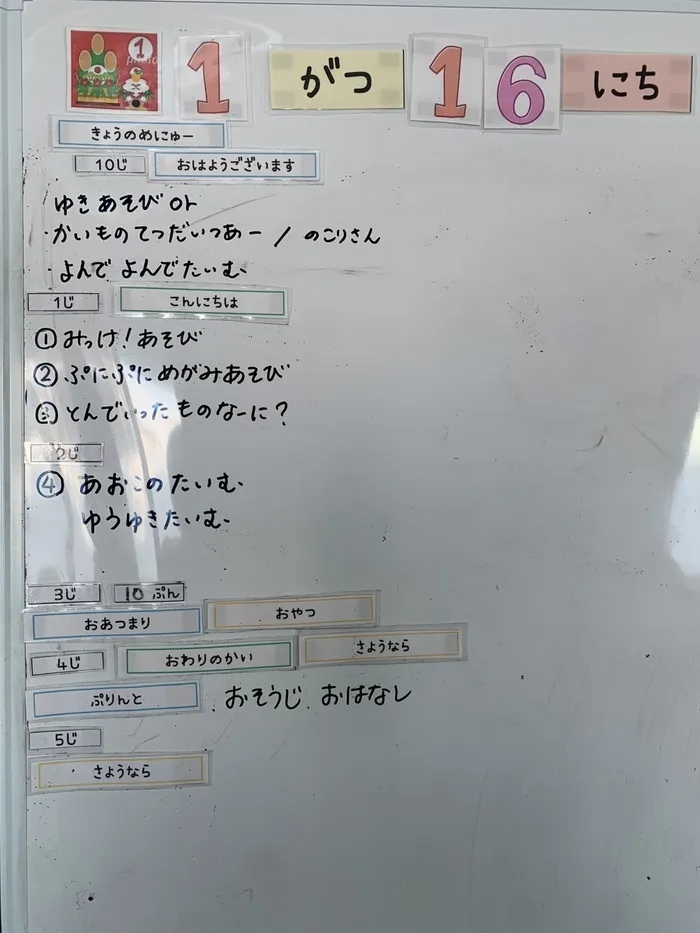 1 がつ 16 にち
きょうのめにゅー
10じ おはようございます
ゆきあそび OT
・かいものてつだいつあー / のこりさん
・よんでよんでたいむ
1じ こんにちは
①みっけ!あそび
②ぷにぷにめがみあそび
③とんでいったものなーに?
2じ
④ あおこのたいむ
ゆうゆきたいむ
3じ 10 ぷん
おあつまり おやつ
4じ おわりのかい さようなら
ぷりんと ・おそうじ ・おはなし
5じ
さようなら